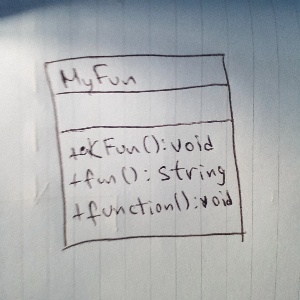 MyFun
+okFun():void
+fun(): string
+function():void